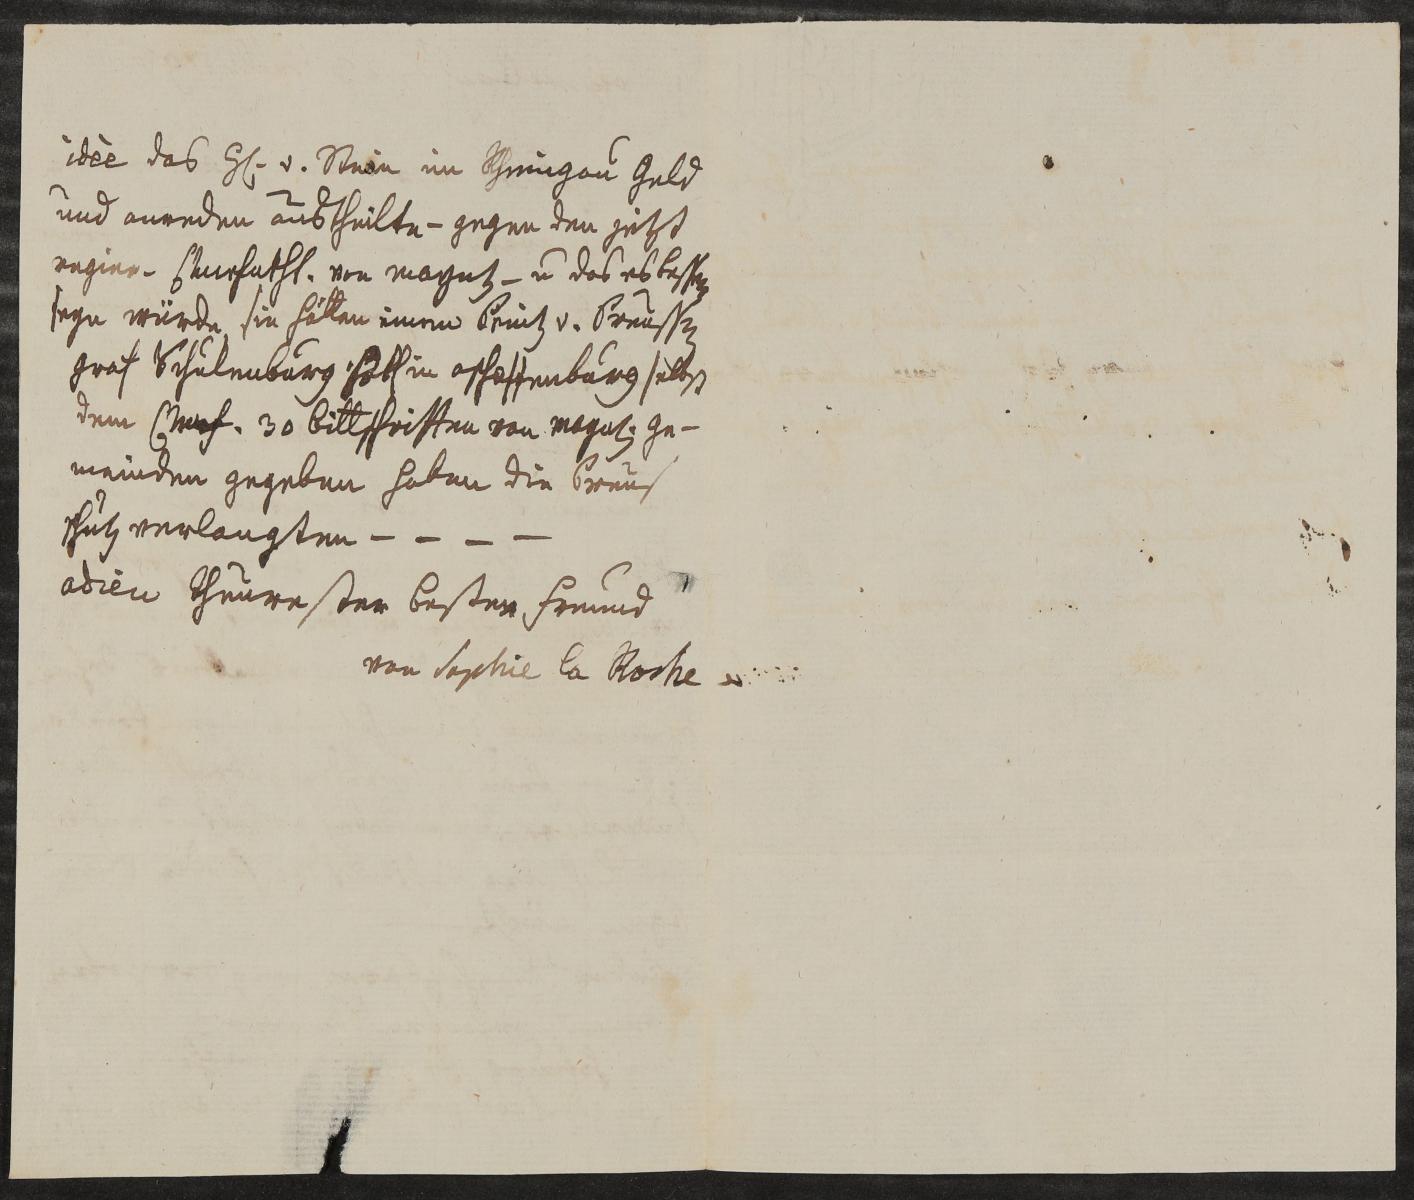 idèe das H. v. Stein im Rheingau Geld
und anreden austheilte – gegen den jetzt
regier- Churfürstl. von Maynz – u das es besser
seyn würde, sie hätten einen Printz v. Preussen
graf Schulenburg soll in aschaffenburg selbst
dem Churf. 30 bittschriften von Maynz. Ge-
meinden gegeben haben die Preus
schutz verlangten – – – –
adieu theurester bester freund
von Sophie la Roche